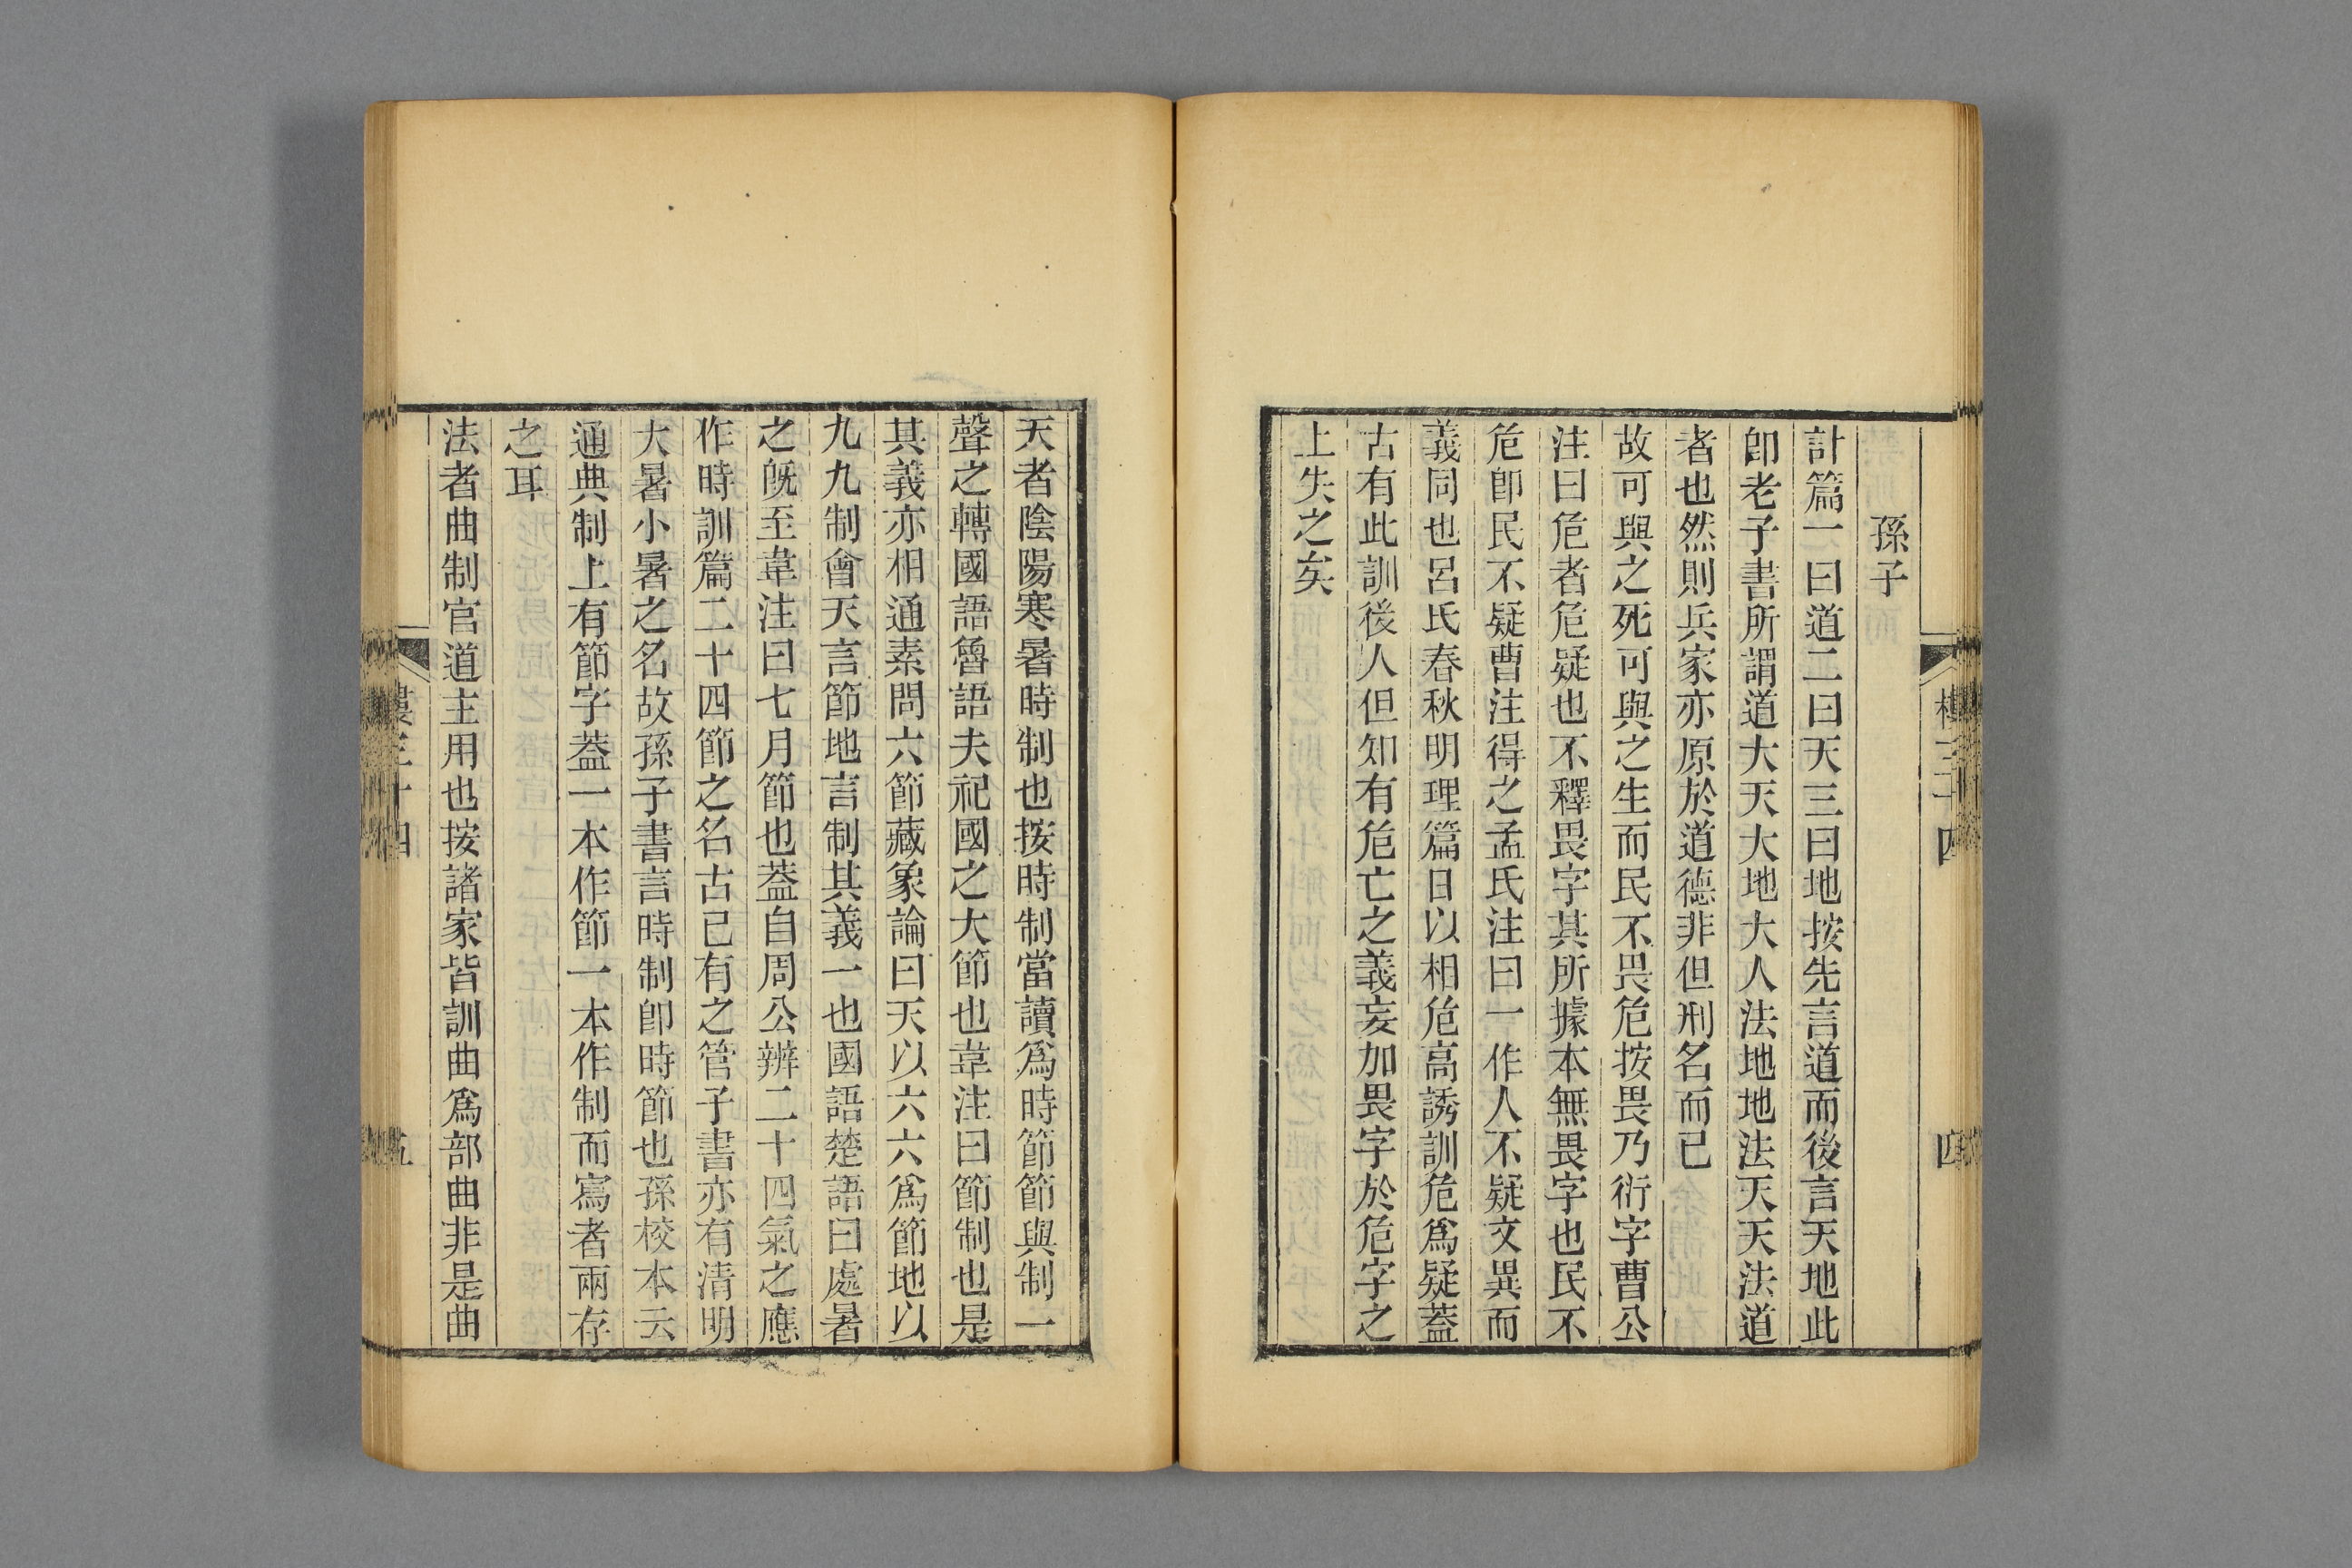 孫子
計篇一曰道二曰天三曰地按先言道而後言天地此
卽老子書所謂道大天大地大人法地地法天天法道
者也然則兵家亦原於道德非但刑名而已
故可與之死可與之生而民不畏危按畏乃衍字曹公
注曰危者危疑也不釋畏字其所據本無畏字也民不
危卽民不疑曹注得之孟氏注曰一作人不疑文異而
義同也呂氏春秋明理篇日以相危高誘訓危爲疑蓋
古有此訓後人但知有危亡之義妄加畏字於危字之
上失之矣
天者陰陽寒暑時制也按時制當讀爲時節節與制一
聲之轉國語魯語夫祀國之大節也韋注曰節制也是
其義亦相通素問六節藏象論曰天以六六爲節地以
九九制會天言節地言制其義一也國語楚語曰處暑
之旣至韋注曰七月節也蓋自周公辨二十四氣之應
作時訓篇二十四節之名古已有之管子書亦有淸明
大暑小暑之名故孫子書言時制卽時節也孫校本云
通典制上有節字蓋一本作節一本作制而寫者兩存
之耳
法者曲制官道主用也按諸家皆訓曲爲部曲非是曲